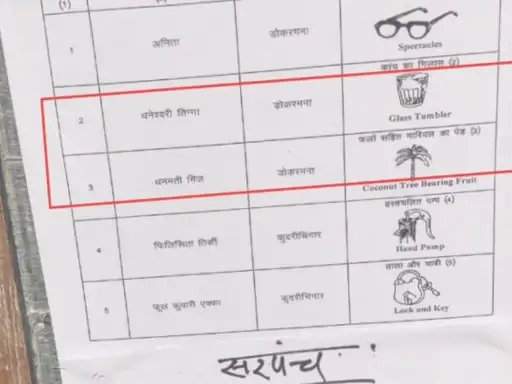 (1)
1 अनिता डोकरमना Spectacles
कांच का गिलास (2)
2 धनेश्वरी तिग्गा डोकरमना Glass Tumbler
फलों सहित नारियल का पेड़ (3)
3 धनमती मिंज डोकरमना Coconut Tree Bearing Fruit
हस्तचलित पम्प (4)
4 फिलिसिता तिर्की कुदरीचिंगार Hand Pump
ताला और चाबी (5)
5 फूल कुवारी एक्का कुदरीचिंगार Lock and Key
सरपंच